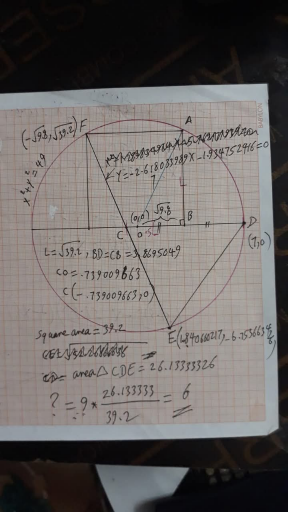 (-√9.8, √39.2) F
A
x²+y²=49
-Y=-2.618033989X-1.934752916=0
7
L
(0,0) √9.8
C
O
B
D
(7,0)
L=√39.2, BD=CB=3.8695049
CO=.739009663
C(-.739009663,0)
E
square area=39.2
area△CDE=26.13333326
?=9*26.133333/39.2=6